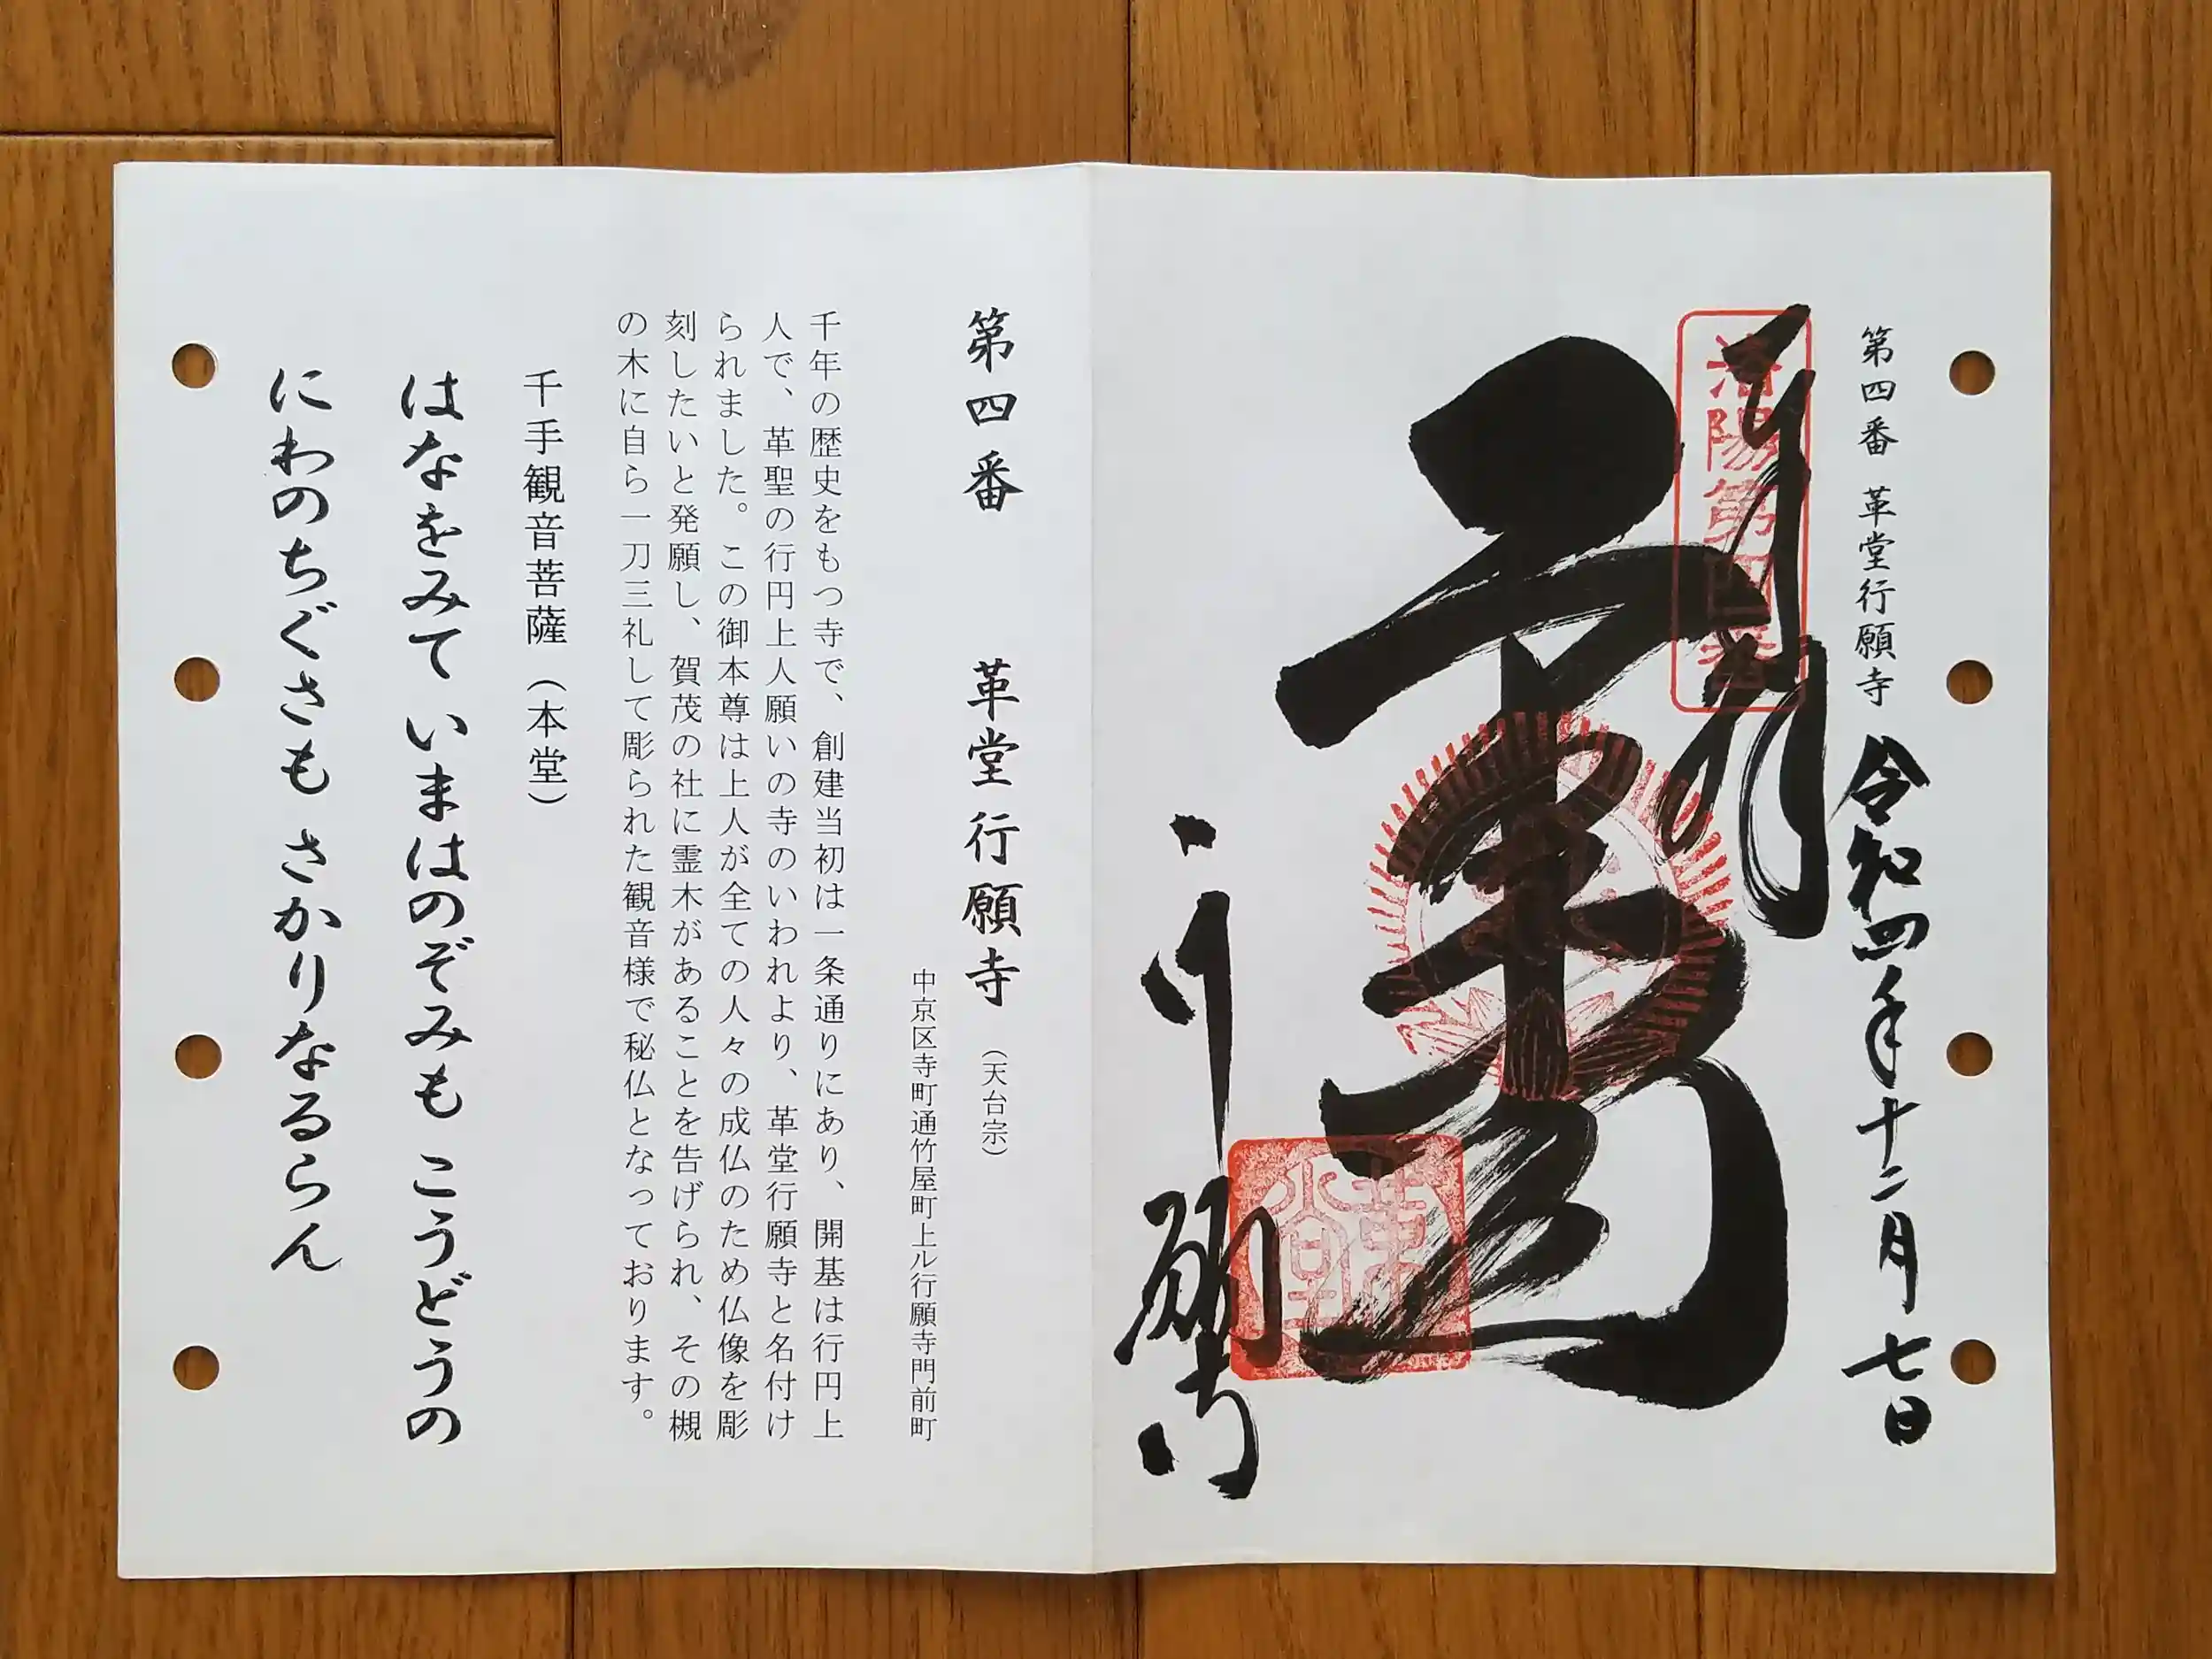 第四番 革堂行願寺
令和四年十二月七日
奉拝
革堂
行願寺
洛陽第四番
革堂
第四番 革堂行願寺 （天台宗）
中京区寺町通竹屋町上ル行願寺門前町
千年の歴史をもつ寺で、創建当初は一条通りにあり、開基は行円上
人で、革聖の行円上人願いの寺のいわれより、革堂行願寺と名付け
られました。この御本尊は上人が全ての人々の成仏のため仏像を彫
刻したいと発願し、賀茂の社に霊木があることを告げられ、その槻
の木に自ら一刀三礼して彫られた観音様で秘仏となっております。
千手観音菩薩（本堂）
はなをみて いまはのぞみも こうどうの
にわのちぐさも さかりなるらん